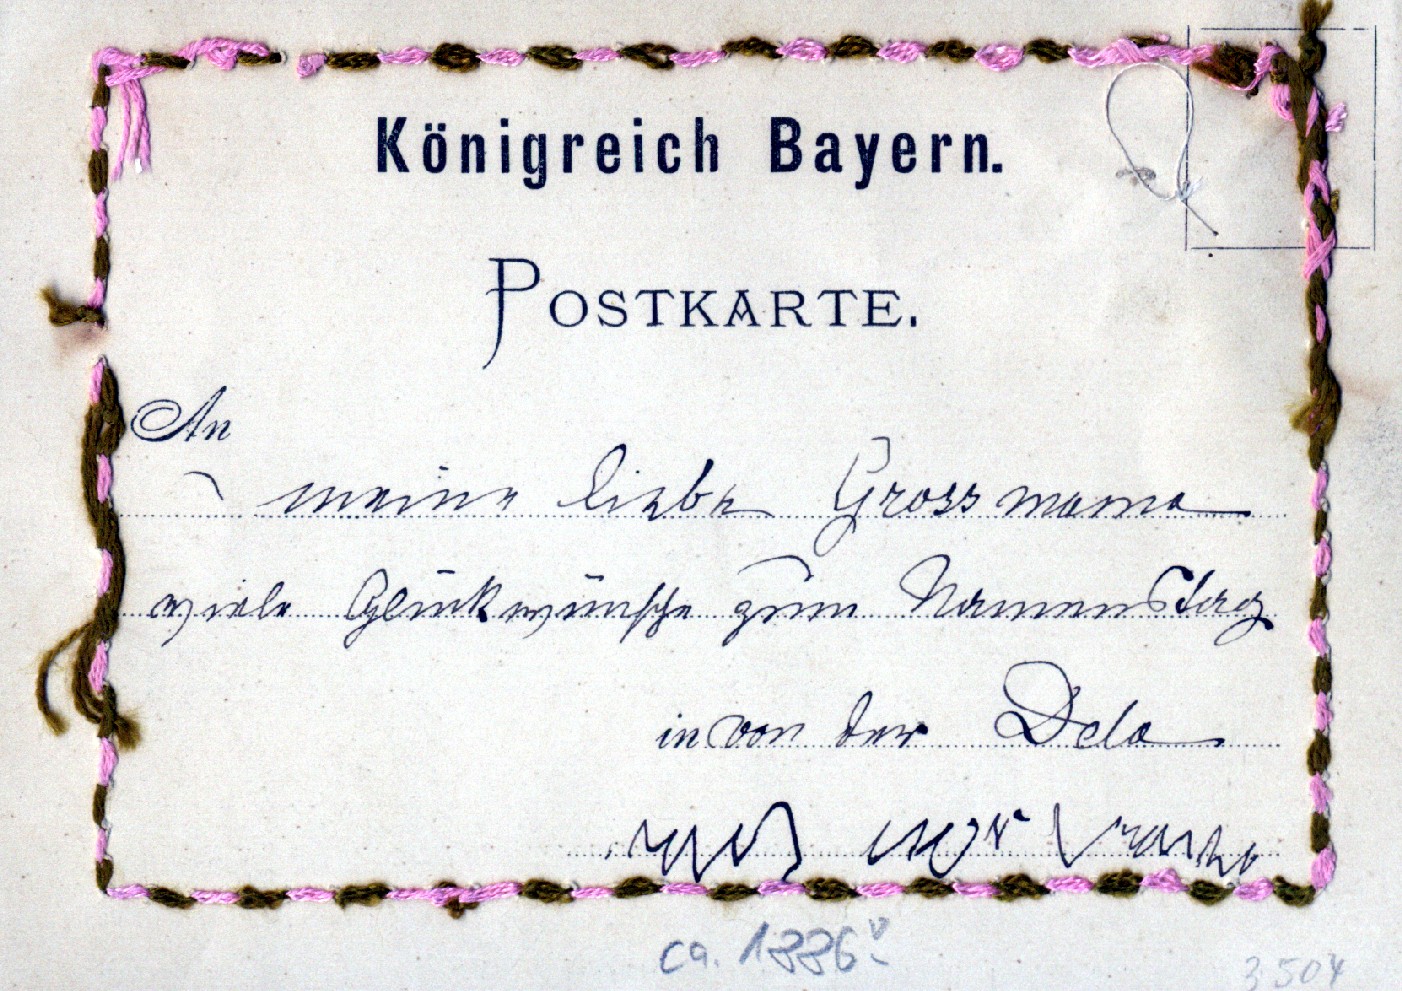 Königreich Bayern.
POSTKARTE.
An
meine liebe Grossmama
viele Glükwünsche zum Namenstag
von der Dela
ca. 1886
3504